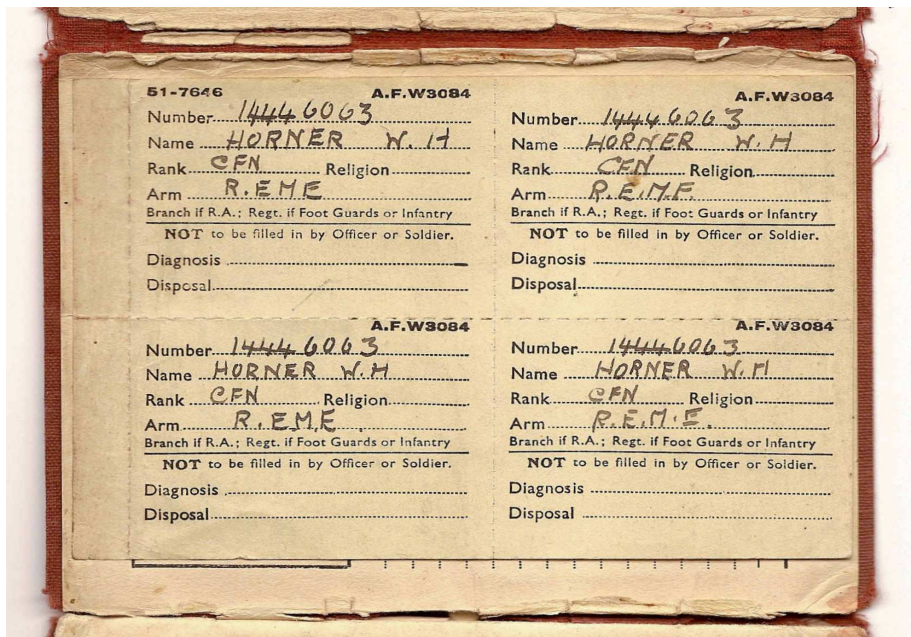 51-7646 A.F.W3084
Number 14446063
Name HORNER W. H
Rank CFN Religion
Arm R. EME
Branch if R.A.; Regt. if Foot Guards or Infantry
NOT to be filled in by Officer or Soldier.
Diagnosis
Disposal
A.F.W3084
Number 14446063
Name HORNER W. H
Rank CFN Religion
Arm R.E.M.E.
Branch if R.A.; Regt. if Foot Guards or Infantry
NOT to be filled in by Officer or Soldier.
Diagnosis
Disposal
A.F.W3084
Number 14446063
Name HORNER W.H
Rank CFN Religion
Arm R. EM.E
Branch if R.A.; Regt. if Foot Guards or Infantry
NOT to be filled in by Officer or Soldier.
Diagnosis
Disposal
A.F.W3084
Number 14446063
Name HORNER W.H
Rank CFN Religion
Arm R.E.M.E.
Branch if R.A.; Regt. if Foot Guards or Infantry
NOT to be filled in by Officer or Soldier.
Diagnosis
Disposal